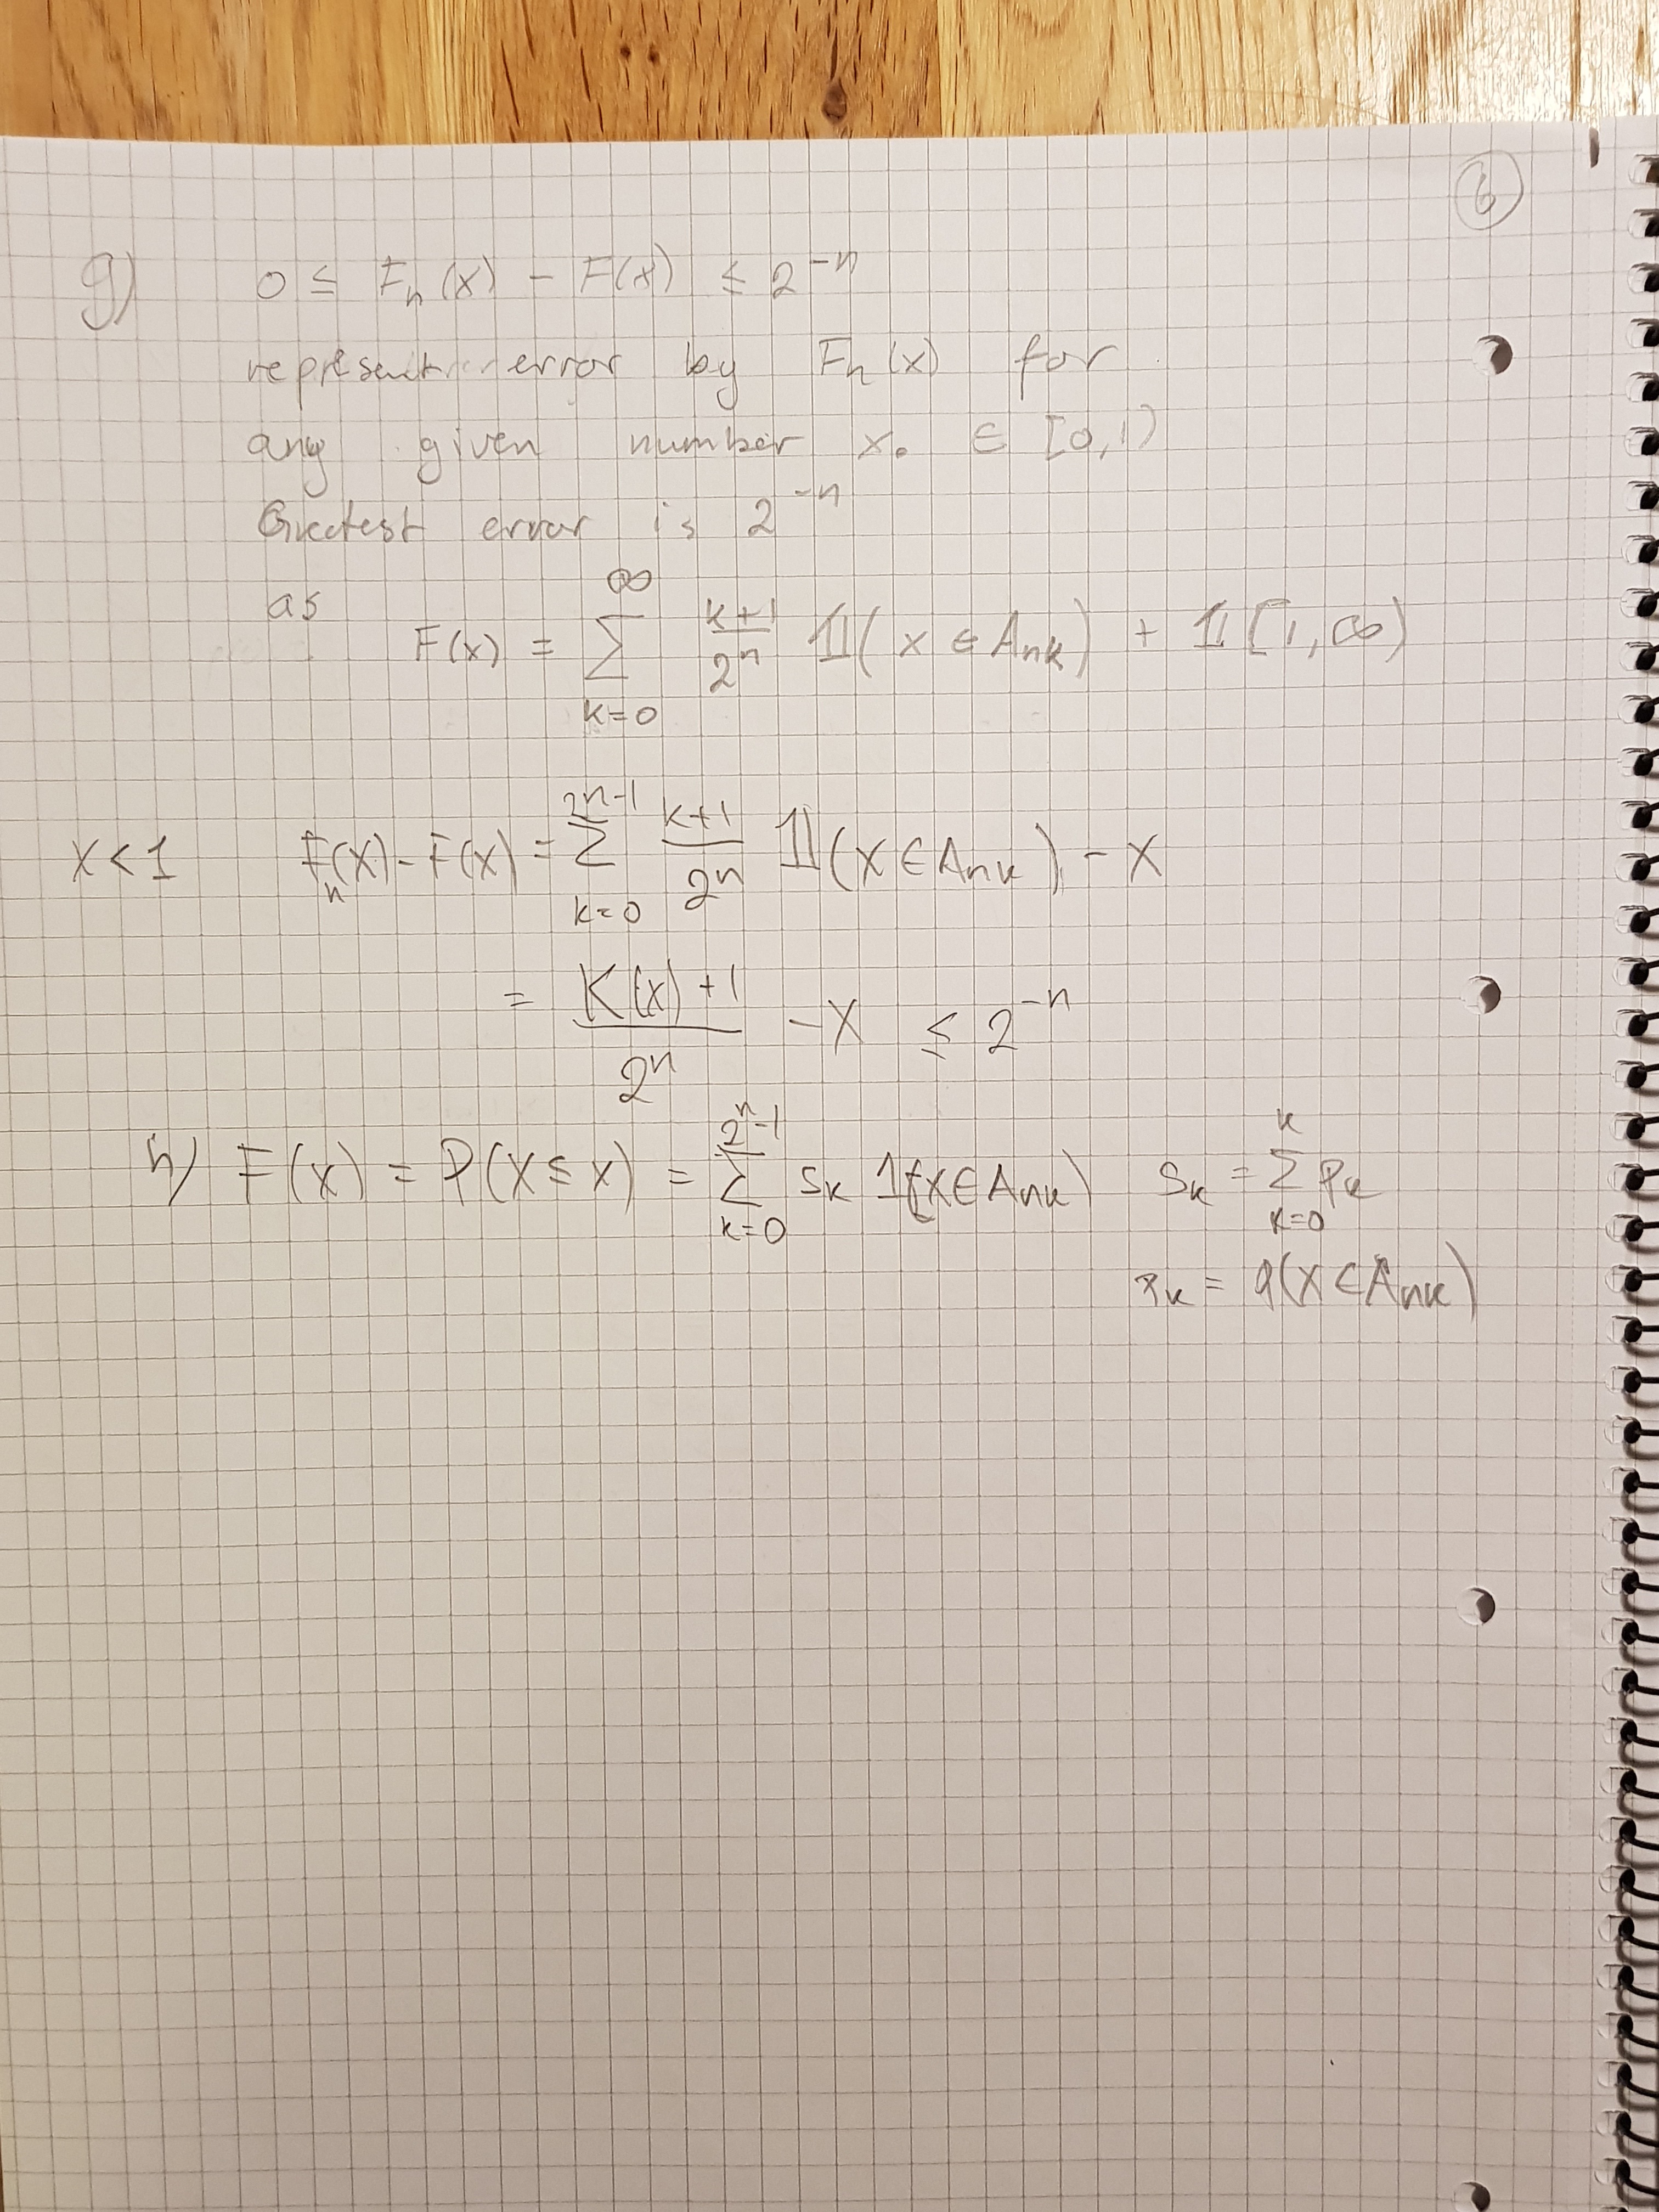 6
g) 0 ≤ Fn(x) - F(x) ≤ 2^-n
represent error by Fn(x) for
any given number x. ∈ [0,1)
Greatest error is 2^-n
as F(x) = ∑_{k=0}^{∞} (k+1)/2^n 𝟙(x ∈ Ank) + 𝟙[1,∞)
x < 1 Fn(x) - F(x) = ∑_{k=0}^{2^n-1} (k+1)/2^n 𝟙(x ∈ Ank) - x
= (K(x)+1)/2^n - x ≤ 2^-n
h) F(x) = P(X ≤ x) = ∑_{k=0}^{2^n-1} Sk 1(x ∈ Ank) Sk = ∑_{k=0}^{k} Pk
Pk = P(X ∈ Ank)